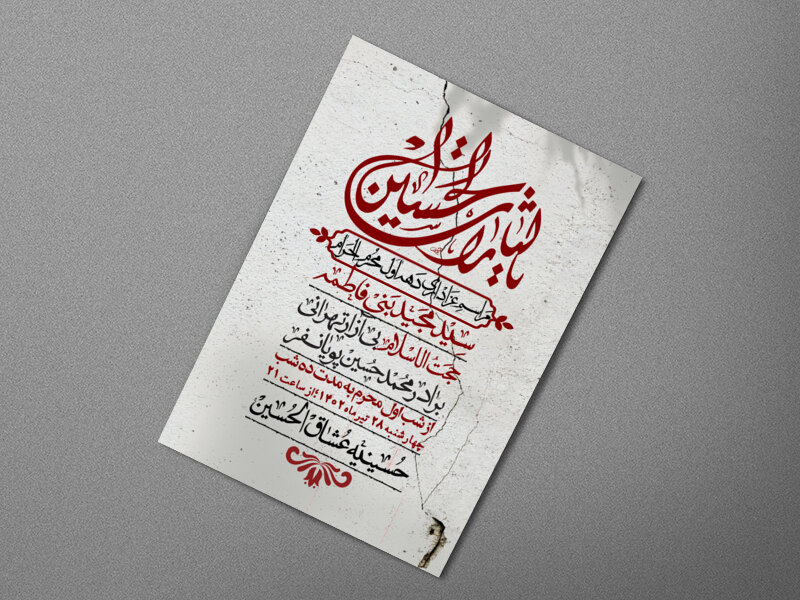 یا لثارات الحسین
مراسم عزاداری دهه اول محرم الحرام
سید مجید بنی فاطمه
حجت الاسلام بی آزار تهرانی
برادر محمد حسین پویانفر
از شب اول محرم به مدت ده شب
چهارشنبه ۲۸ تیرماه ۱۴۰۲ از ساعت ۲۱
حسینیه عشاق الحسین